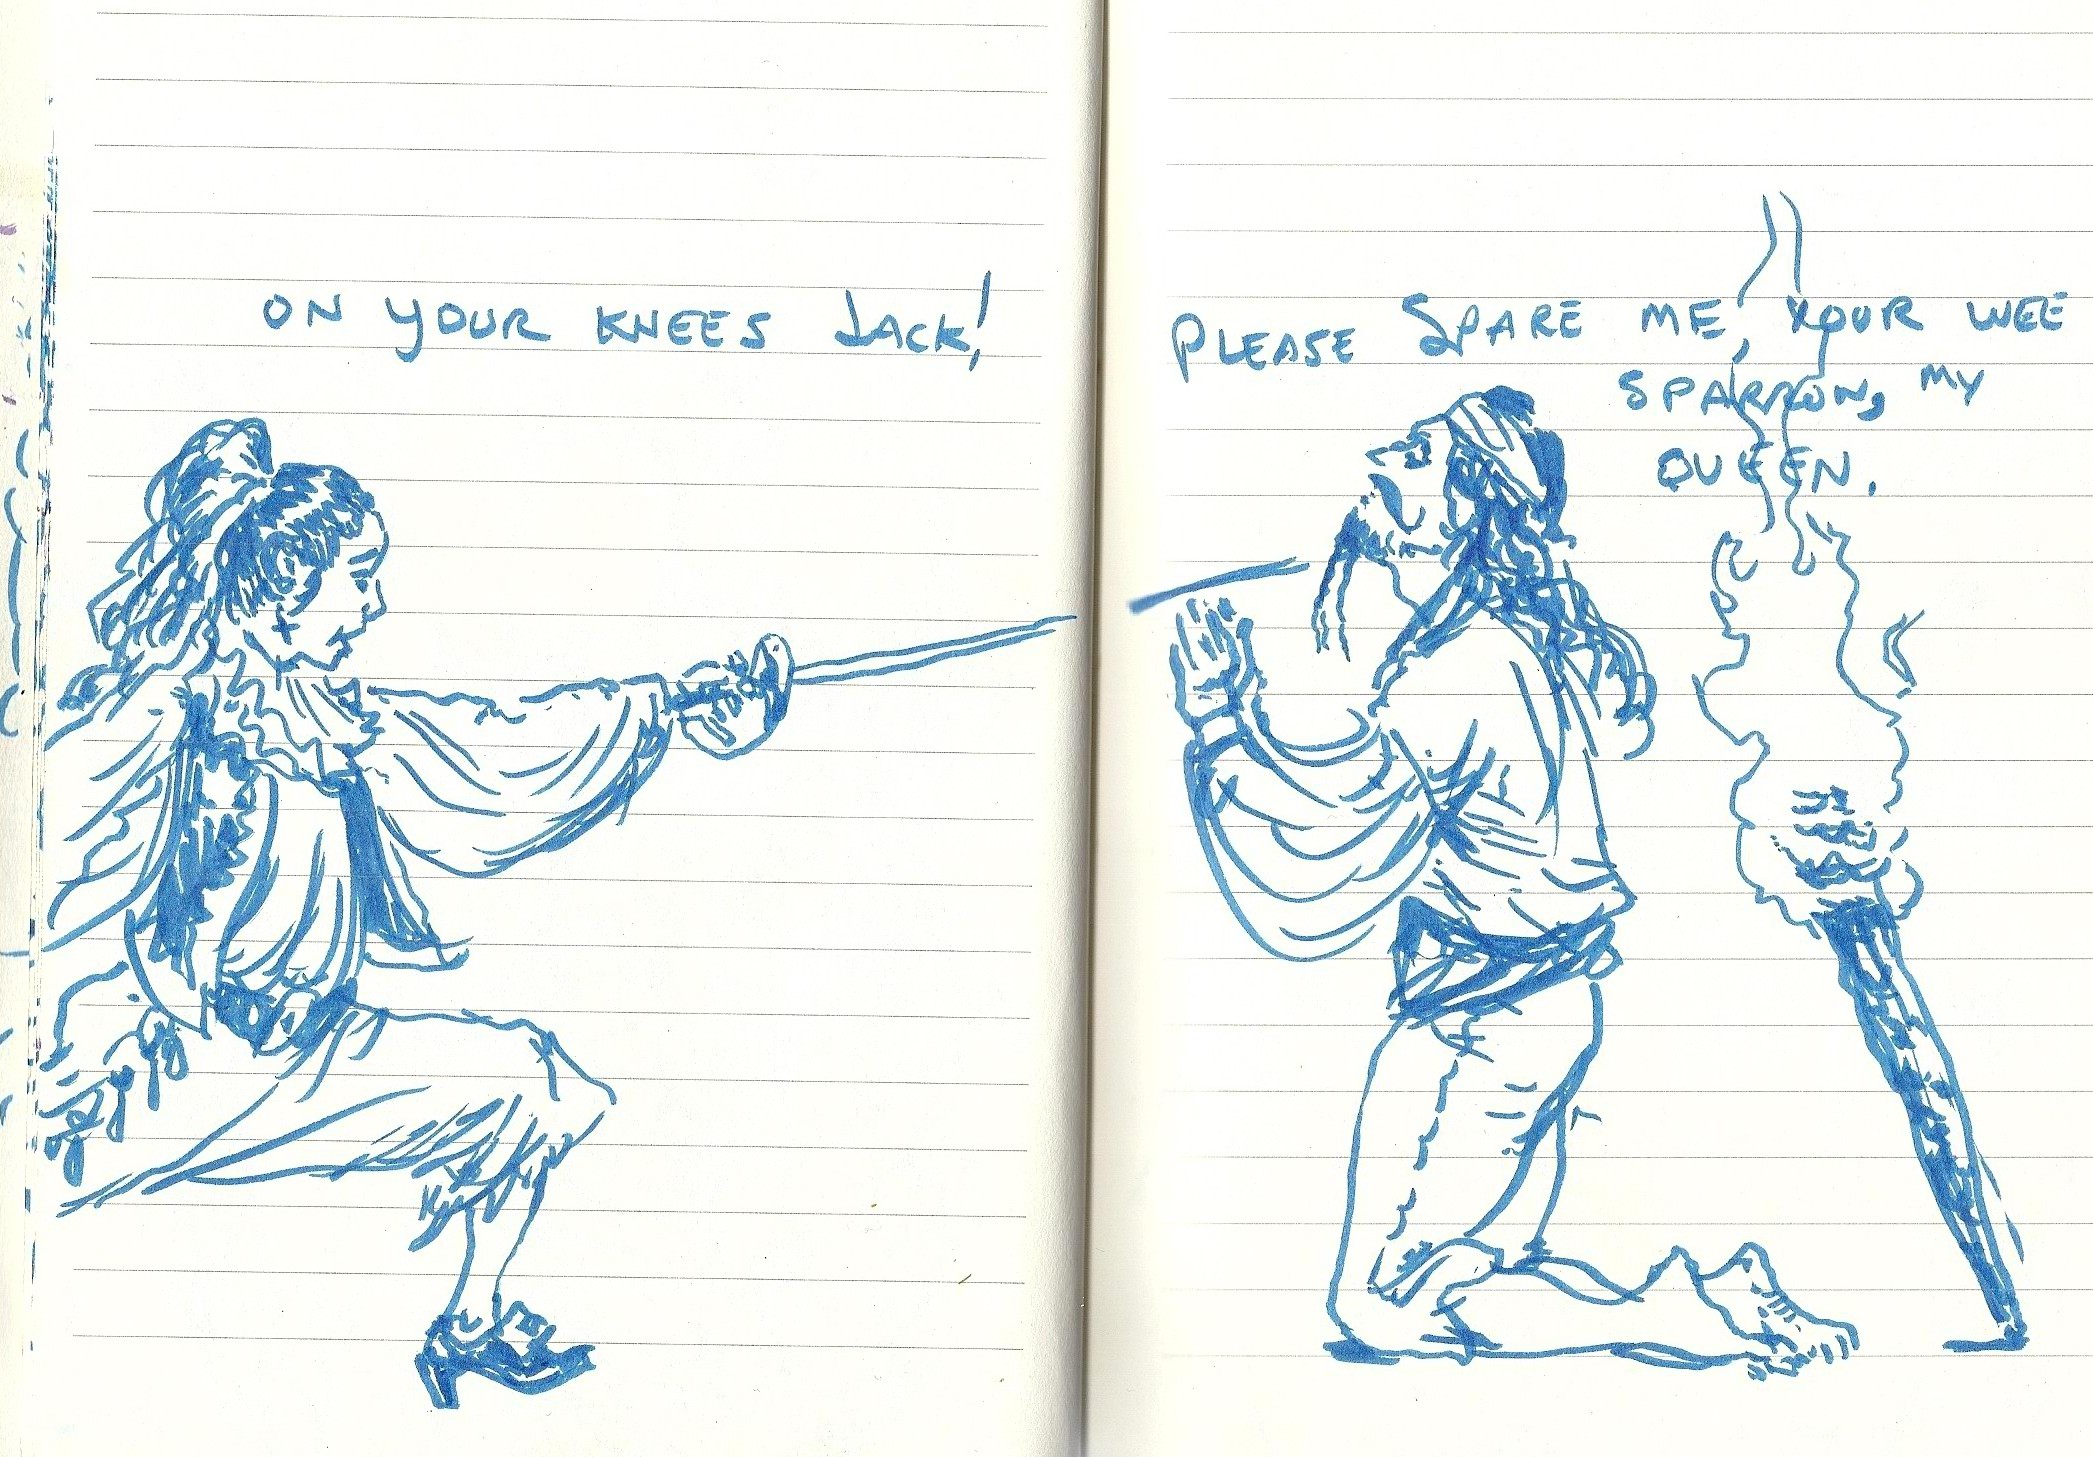 ON YOUR KNEES JACK!
PLEASE SPARE ME, YOUR WEE
SPARROW, MY
QUEEN.